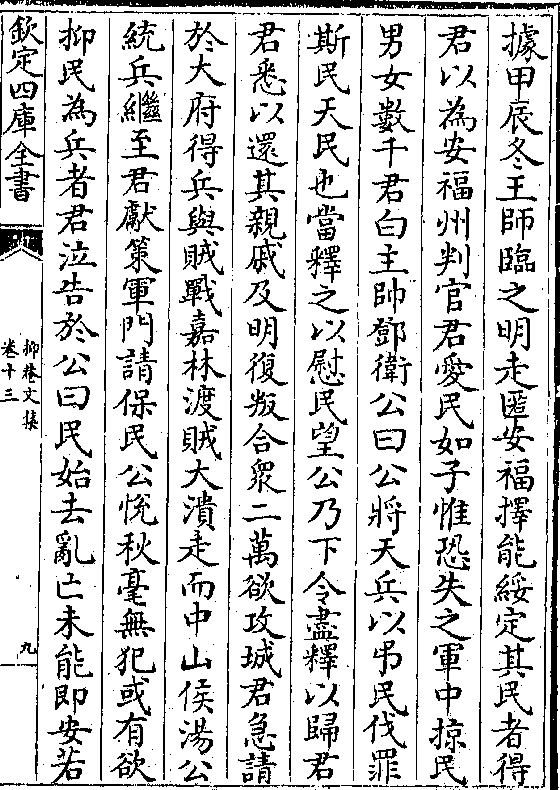 據甲辰冬王師臨之明走匿安福擇能綏定其民者得
君以為安福州判官君愛民如子惟恐失之軍中掠民
男女數千君白主帥鄧衛公曰公將天兵以弔民伐罪
斯民天民也當釋之以慰民望公乃下令盡釋以歸君
君悉以還其親戚及明復叛合衆二萬欲攻城君急請
於大府得兵與賊戰嘉林渡賊大潰走而中山侯湯公
統兵繼至君獻策軍門請保民公悅秋毫無犯或有欲
抑民為兵者君泣告於公曰民始去亂亡未能即安若
欽定四庫全書
抑菴文集
卷十三
九